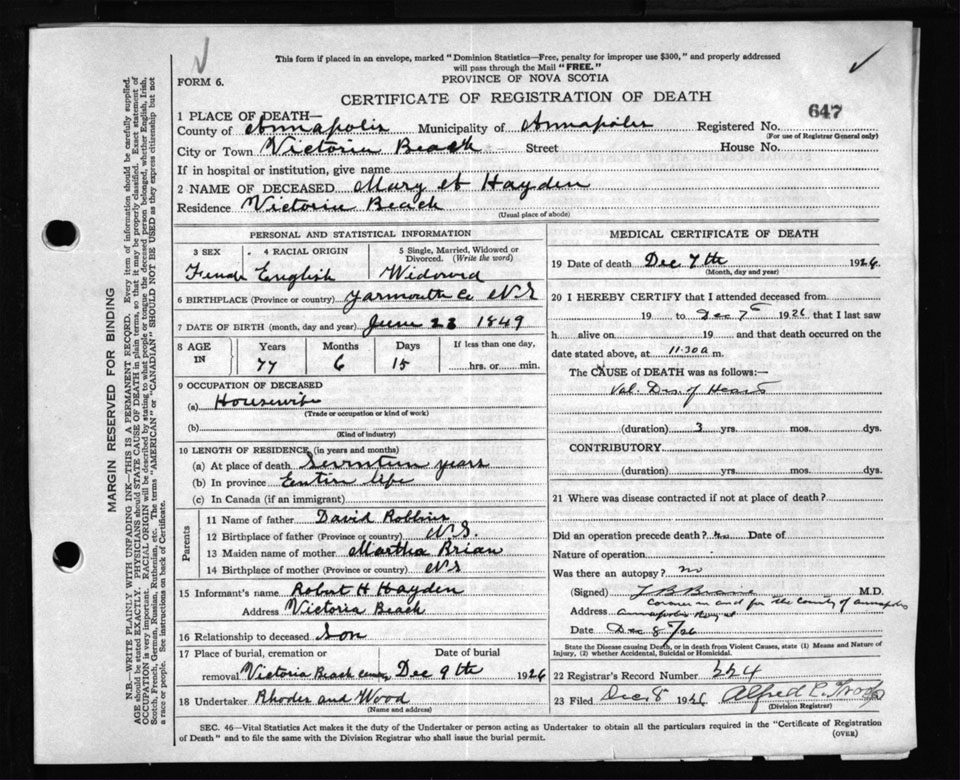 This form if placed in an envelope, marked "Dominion Statistics—Free, penalty for improper use $300," and properly addressed
will pass through the Mail "FREE."
FORM 6.
PROVINCE OF NOVA SCOTIA
CERTIFICATE OF REGISTRATION OF DEATH
647
1 PLACE OF DEATH—
County of Annapolis Municipality of Annapolis Registered No.
(For use of Registrar General only)
City or Town Victoria Beach Street House No.
If in hospital or institution, give name
2 NAME OF DECEASED Mary Hayden
Residence Victoria Beach
(Usual place of abode)
PERSONAL AND STATISTICAL INFORMATION
3 SEX 4 RACIAL ORIGIN 5 Single, Married, Widowed or Divorced. (Write the word)
Female English Widowed
6 BIRTHPLACE (Province or country) Yarmouth Co NS
7 DATE OF BIRTH (month, day and year) June 23 1849
8 AGE IN Years Months Days If less than one day,
77 6 15 hrs. or min.
9 OCCUPATION OF DECEASED
(a) Housewife
(Trade or occupation or kind of work)
(b)
(Kind of industry)
10 LENGTH OF RESIDENCE (in years and months)
(a) At place of death Seventeen years
(b) In province Entire life
(c) In Canada (if an immigrant)
Parents
11 Name of father David Robbins
12 Birthplace of father (Province or country) N.S.
13 Maiden name of mother Martha Brian
14 Birthplace of mother (Province or country) NS
15 Informant's name Robert H Hayden
Address Victoria Beach
16 Relationship to deceased Son
17 Place of burial, cremation or Date of burial
removal Victoria Beach Dec 9th 1926
18 Undertaker Rhodes and Wood
(Name and address)
MEDICAL CERTIFICATE OF DEATH
19 Date of death Dec 7th 1926
(Month, day and year)
20 I HEREBY CERTIFY that I attended deceased from
19 to Dec 7 1926 that I last saw
h alive on 19 and that death occurred on the
date stated above, at 11.30 a m.
The CAUSE of DEATH was as follows:—
Val. Dis. of Heart
(duration) 3 yrs. mos. dys.
CONTRIBUTORY
(duration) yrs. mos. dys.
21 Where was disease contracted if not at place of death?
Did an operation precede death? no Date of
Nature of operation
Was there an autopsy? no
(Signed) M.D.
Coroner in and for the County of Annapolis
Address Annapolis Royal
Date Dec 8/26
State the Disease causing Death, or in death from Violent Causes, state (1) Means and Nature of
Injury, (2) whether Accidental, Suicidal or Homicidal.
22 Registrar's Record Number 224
23 Filed Dec 8 1926 Alfred
(Division Registrar)
SEC. 46—Vital Statistics Act makes it the duty of the Undertaker or person acting as Undertaker to obtain all the particulars required in the "Certificate of Registration
of Death" and to file the same with the Division Registrar who shall issue the burial permit.
(OVER)
MARGIN RESERVED FOR BINDING
N.B.—WRITE PLAINLY WITH UNFADING INK—THIS IS A PERMANENT RECORD. Every item of information should be carefully supplied.
AGE should be stated EXACTLY. PHYSICIANS should STATE CAUSE OF DEATH in plain terms, so that it may be properly classified. Exact statement of
OCCUPATION is very important. RACIAL ORIGIN will be described by stating to what people or tongue the deceased person belonged, whether English, Irish,
Scotch, French, German, Russian, Ruthenian, etc. The terms "AMERICAN" or "CANADIAN" SHOULD NOT BE USED as they express citizenship but not
a race or people. See instructions on back of Certificate.